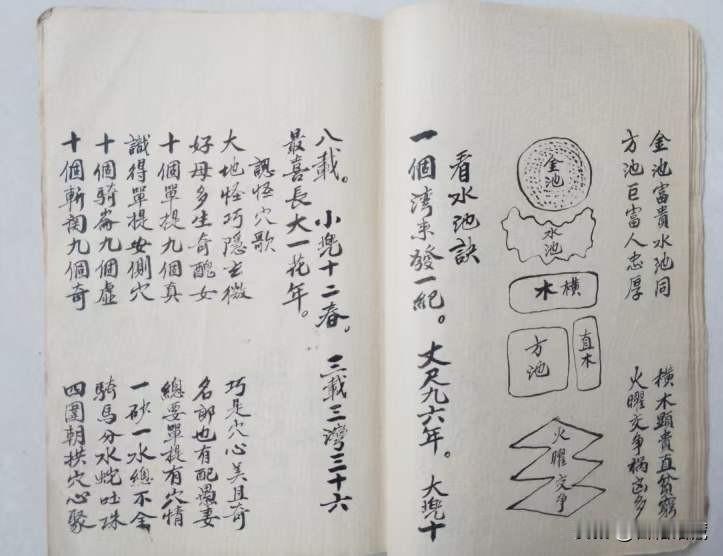 金池富貴水池同　横木顕貴直貧窮
方池巨富人忠厚　火曜交争禍凶多
金池
水池
横木
直木
方池
火曜交争
看水池訣
一個湾来發一紀。丈尺九六年。大兜十
八載。小兜十二春。三載三灣三十六
最喜長大一花年。
認怪穴歌
大地怪巧隐玄微　巧是穴心美且奇
好母多生奇醜女　名郎也有配愚妻
十個單提九個真　總要單提有穴情
識得單提安側穴　一砂一水總不全
十個騎崙九個虚　騎馬分水蛇吐珠
十個斬関九個奇　四圍朝拱穴心聚